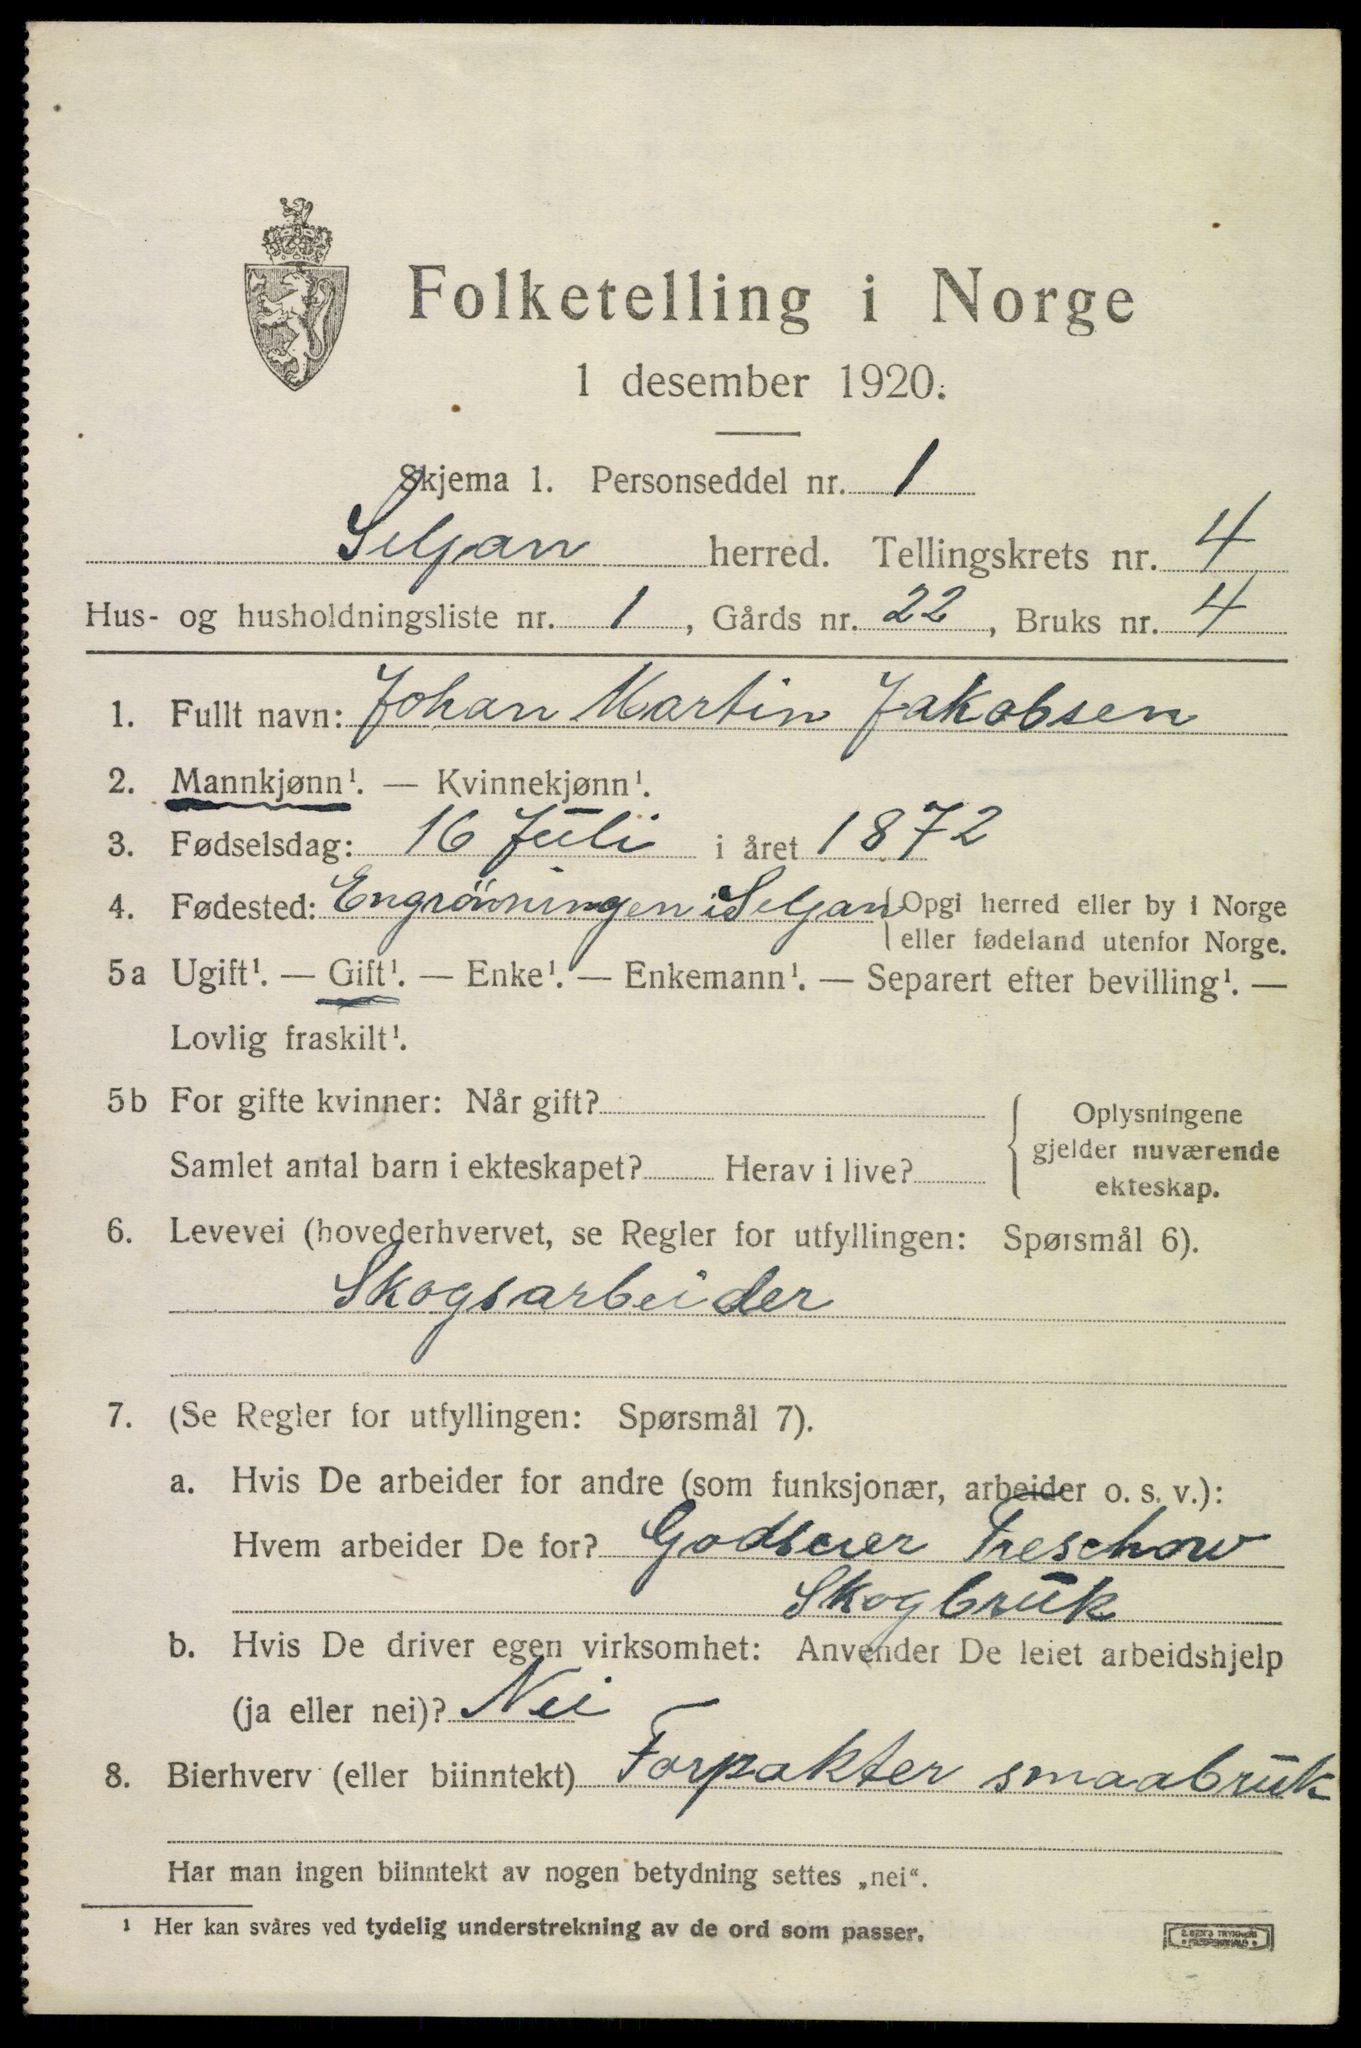 Folketelling i Norge
1 desember 1920.
Skjema 1. Personseddel nr. 1
Seljan herred. Tellingskrets nr. 4
Hus- og husholdningsliste nr. 1, Gårds nr. 22, Bruks nr. 4
1. Fullt navn: Johan Martin Jakobsen
2. Mannkjønn¹. — Kvinnekjønn¹.
3. Fødselsdag: 16 Juli i året 1872
4. Fødested: Engrönningen i Seljan { Opgi herred eller by i Norge
eller fødeland utenfor Norge.
5a Ugift¹. — Gift¹. — Enke¹. — Enkemann¹. — Separert efter bevilling¹. —
Lovlig fraskilt¹.
5b For gifte kvinner: Når gift?
Samlet antal barn i ekteskapet? Herav i live?
Oplysningene
gjelder nuværende
ekteskap.
6. Levevei (hovederhvervet, se Regler for utfyllingen: Spørsmål 6).
Skogsarbeider
7. (Se Regler for utfyllingen: Spørsmål 7).
a. Hvis De arbeider for andre (som funksjonær, arbeider o. s. v.):
Hvem arbeider De for? Godseier Treschow
Skogbruk
b. Hvis De driver egen virksomhet: Anvender De leiet arbeidshjelp
(ja eller nei)? Nei
8. Bierhverv (eller biinntekt) Forpakter smaabruk
Har man ingen biinntekt av nogen betydning settes „nei“.
¹ Her kan svåres ved tydelig understrekning av de ord som passer.